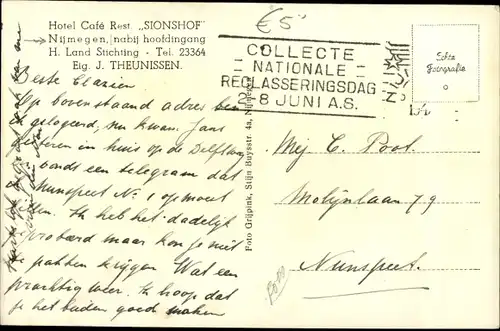 Hotel Café Rest. „SIONSHOF"
Nijmegen, nabij hoofdingang
H. Land Stichting - Tel. 23364
Eig. J. THEUNISSEN.
€5
COLLECTE
NATIONALE
RECLASSERINGSDAG
8 JUNI A.S.
Echte
Fotografie
Beste Clazien
Op bovenstaand adres ben
gelogeerd, nu kwam Jans
in huis op de Delftweg
een telegram dat
Nunspeet No 1 op moet
Ik heb het dadelijk
probeerd maar kon je niet
te pakken krijgen Wat een
prachtig weer. Ik hoop dat
je het baden goed maken
Foto Grijpink, Stijn Buysstr. 4a, Nijmegen
Mej C. Pool.
Molijnlaan 79
Nunspeet.